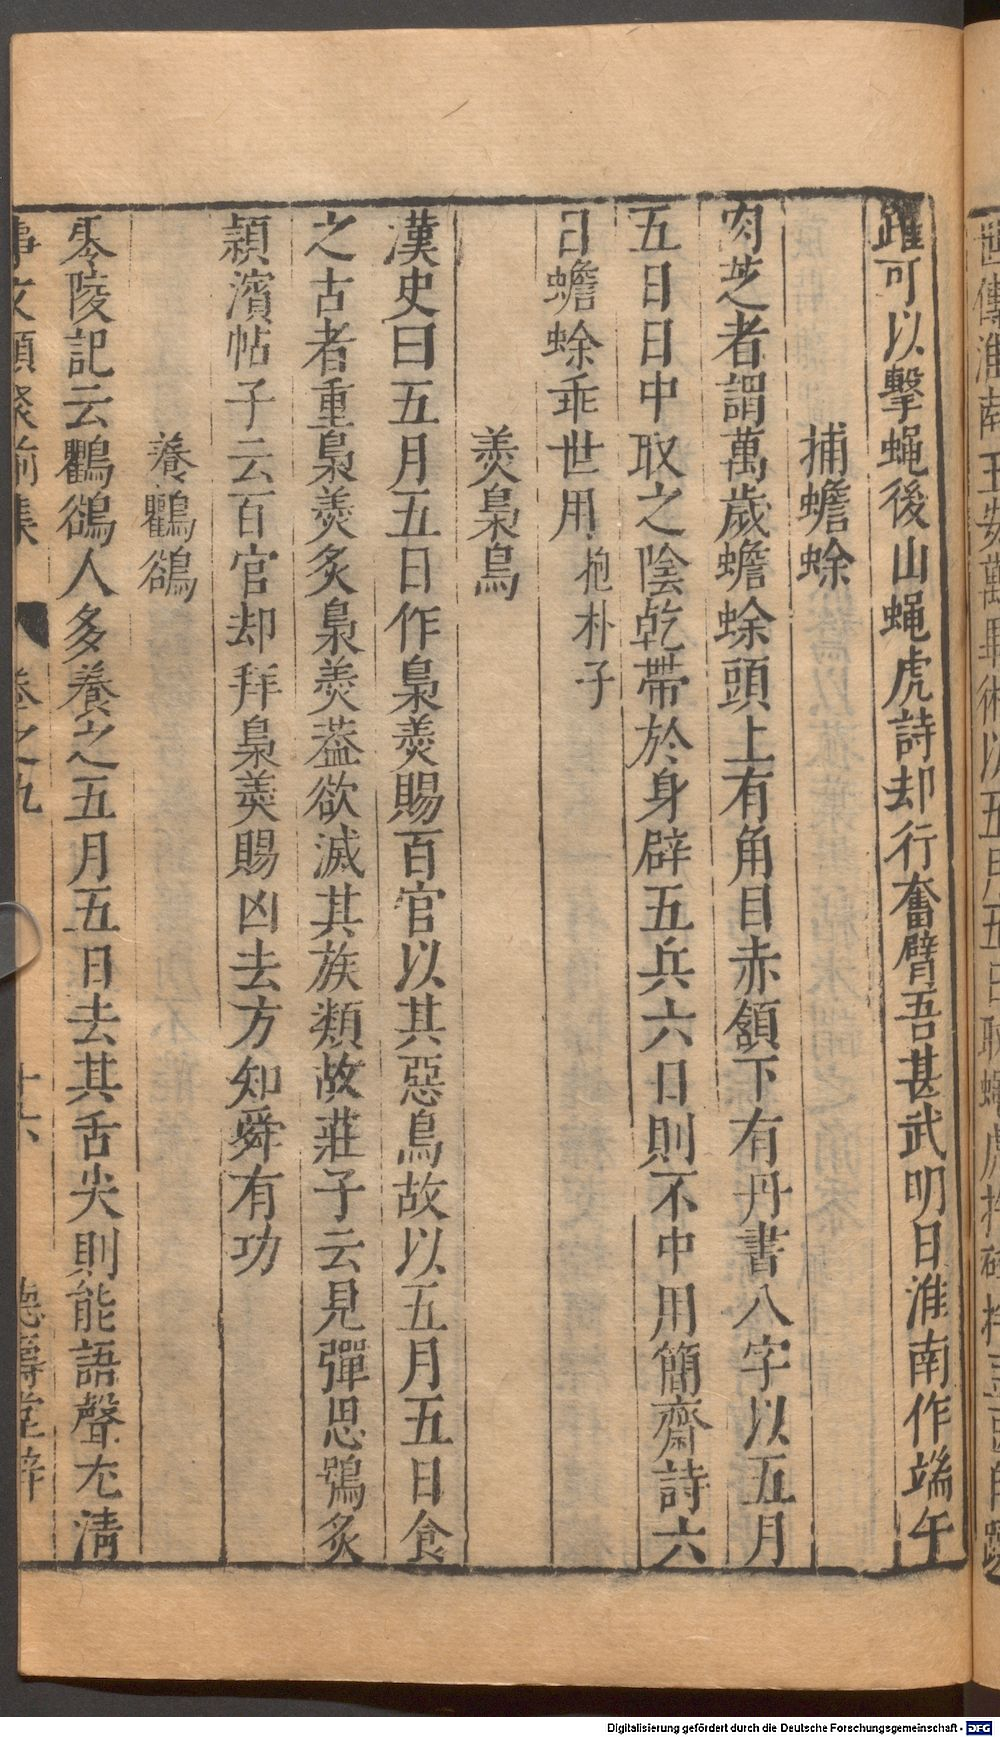 躍可以擊蝇後山蝇虎詩却行奮臂吾甚武明日淮南作端午
捕蟾蜍
肉芝者謂萬歲蟾蜍頭上有角目赤頷下有丹書八字以五月
五日日中取之陰乾帶於身辟五兵六日則不中用簡齋詩六
日蟾蜍乖世用 抱朴子
羮梟鳥
漢史曰五月五日作梟羮賜百官以其惡鳥故以五月五日食
之古者重梟羮炙梟羮葢欲滅其族類故莊子云見彈思鴞炙
潁濱帖子云百官却拜梟羮賜凶去方知舜有功
養鸜鵒
零陵記云鸜鵒人多養之五月五日去其舌尖則能語聲尤清
事文類聚前集 卷之九 十六 德壽堂梓
Digitalisierung gefördert durch die Deutsche Forschungsgemeinschaft - DFG